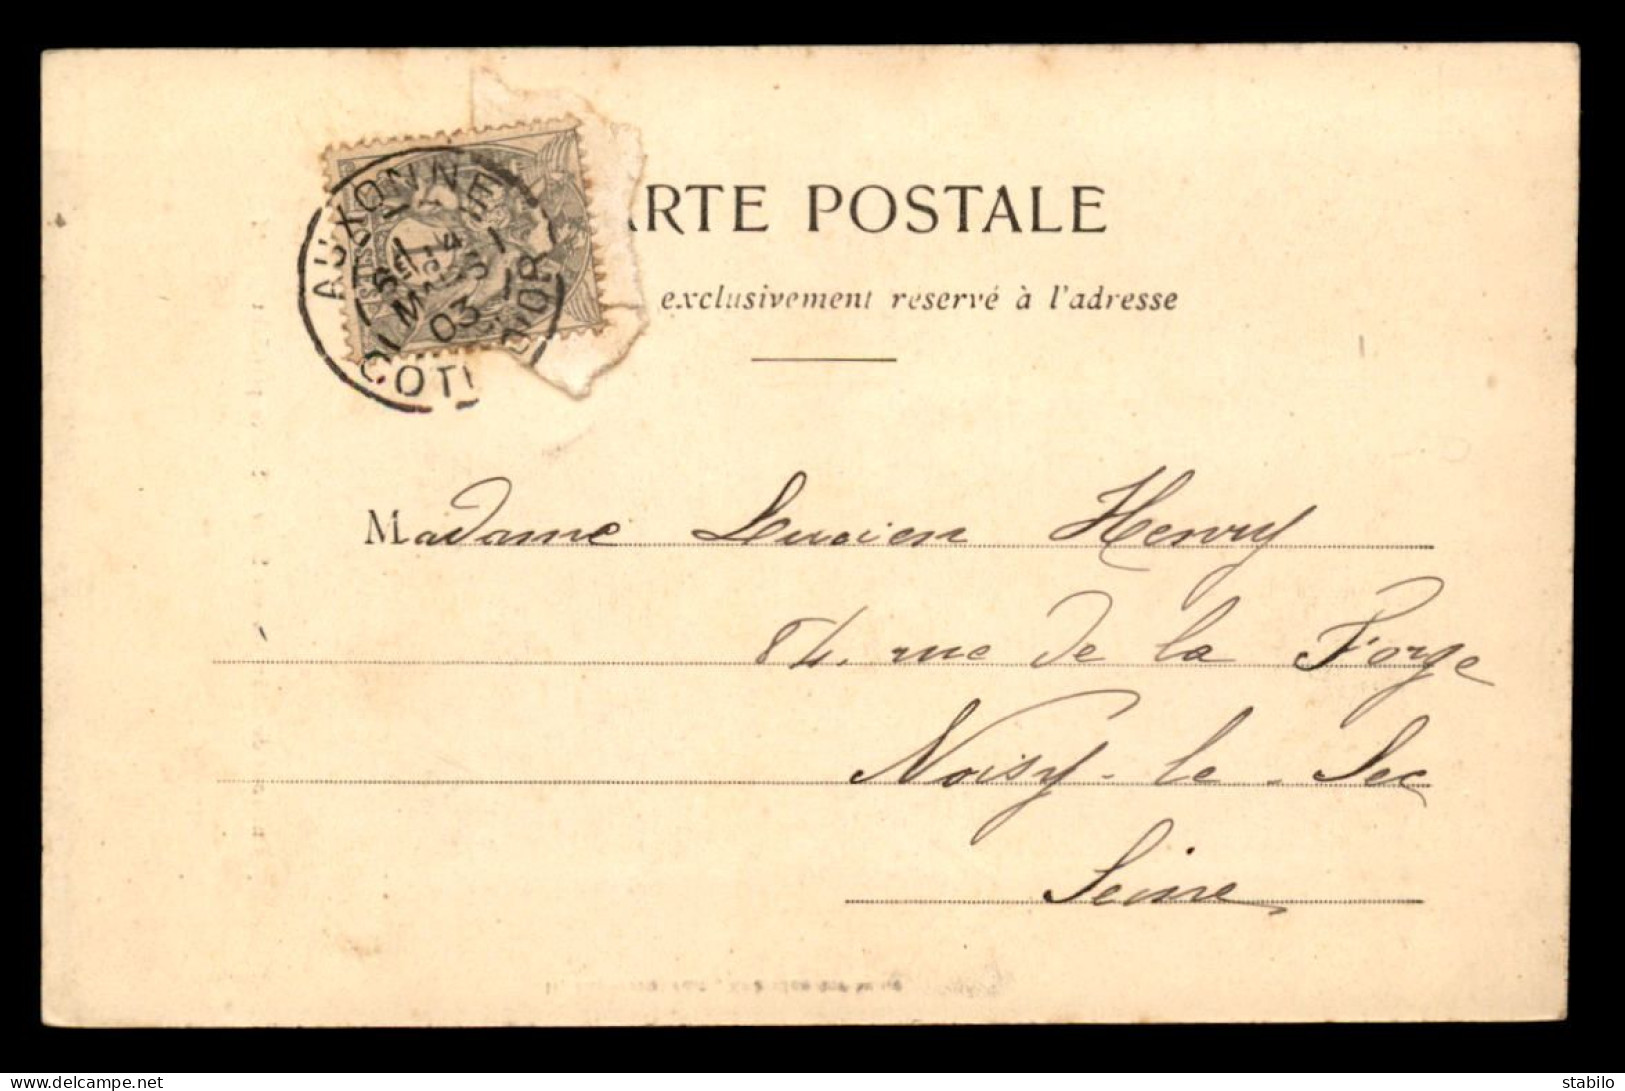 ARTE POSTALE
exclusivement réservé à l'adresse
AUXONNE
MARS
03
COTE D'OR
Madame Lucien Henry
84, rue de la Forge
Noisy-le-Sec
Seine
www.delcampe.net
stabilo